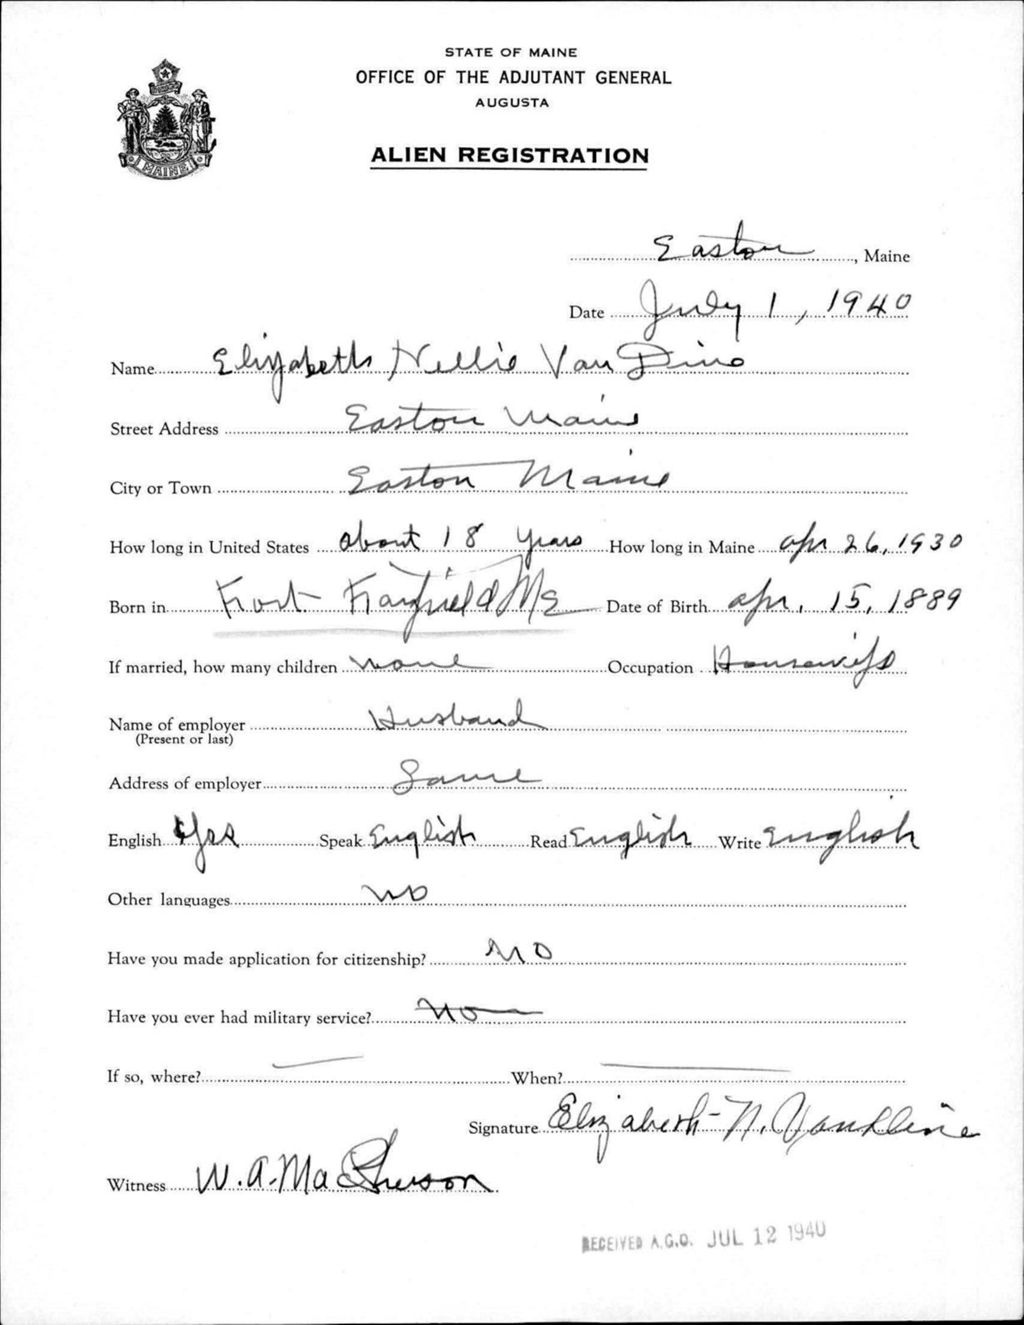 STATE OF MAINE
OFFICE OF THE ADJUTANT GENERAL
AUGUSTA
ALIEN REGISTRATION
MAINE
Easton, Maine
Date July 1, 1940
Name Elizabeth Nellie Van Dine
Street Address Easton Maine
City or Town Easton Maine
How long in United States about 18 years How long in Maine apr 26, 1930
Born in Fort Fairfield Me Date of Birth apr. 15, 1889
If married, how many children none Occupation Housewife
Name of employer Husband
(Present or last)
Address of employer Same
English Yes Speak English Read English Write English
Other languages no
Have you made application for citizenship? no
Have you ever had military service? no
If so, where? When?
Signature Elizabeth N. VanDine
Witness W. A. MacPherson
RECEIVED A.G.O. JUL 12 1940